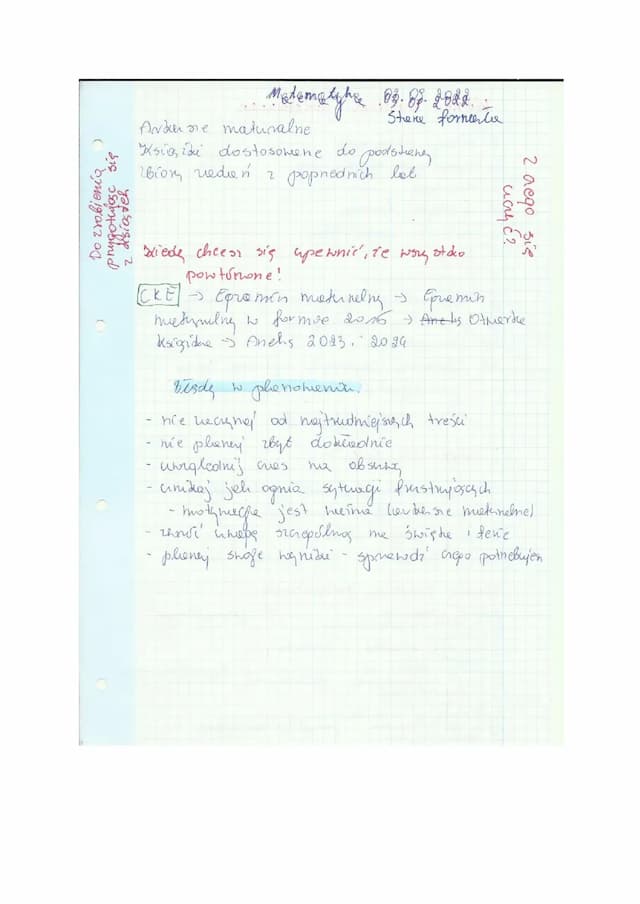 Matematyka 03.09.2022
Stara formuła
Arkusze maturalne
Książki dostosowane do podstawy
Zbiory zadań z poprzednich lat
Z czego się
uczyć?
Do zrobienia
przygotując się
z książek
Kiedy chcesz się upewnić, że wszystko
powtórzone!
CKE → Egzamin maturalny → Egzamin
maturalny w formule 2015 → Aneks Otwarta
Książka → Aneks 2023 i 2024
Błędy w planowaniu.
- nie zaczynaj od najtrudniejszych treści
- nie planuj zbyt dokładnie
- uwzględnij czas na obsuwę
- unikaj jak ognia sytuacji frustrujących
- motywacja jest ważna (arkusze maturalne)
- zwróć uwagę szczególną na święta i ferie
- planuj swoje wyniki - sprawdź czego potrzebujesz